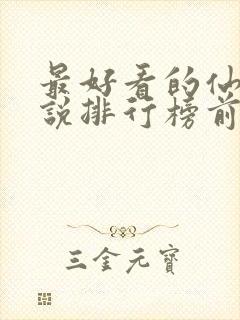 最好看的仙
説排行榜前
三金元寶